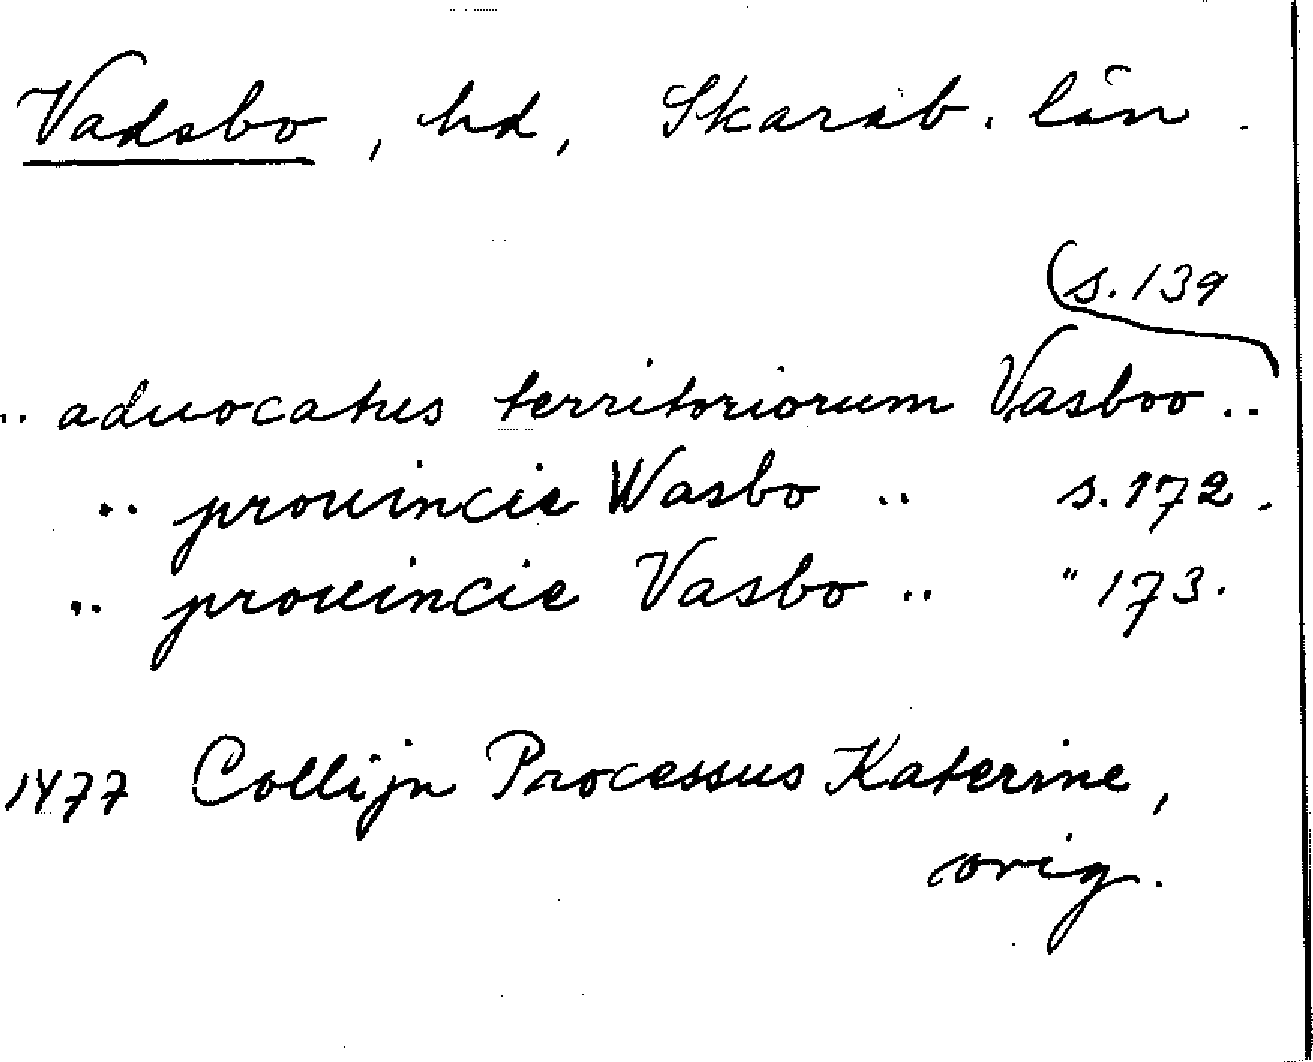 Vadsbo, hd, Skarab. län.
(s. 139
.. aduocatus territoriorum Vasboo ..
.. prouincie Wasbo .. s. 172.
.. prouincie Vasbo .. " 173.
1477 Collijn Processus Katerine,
orig.